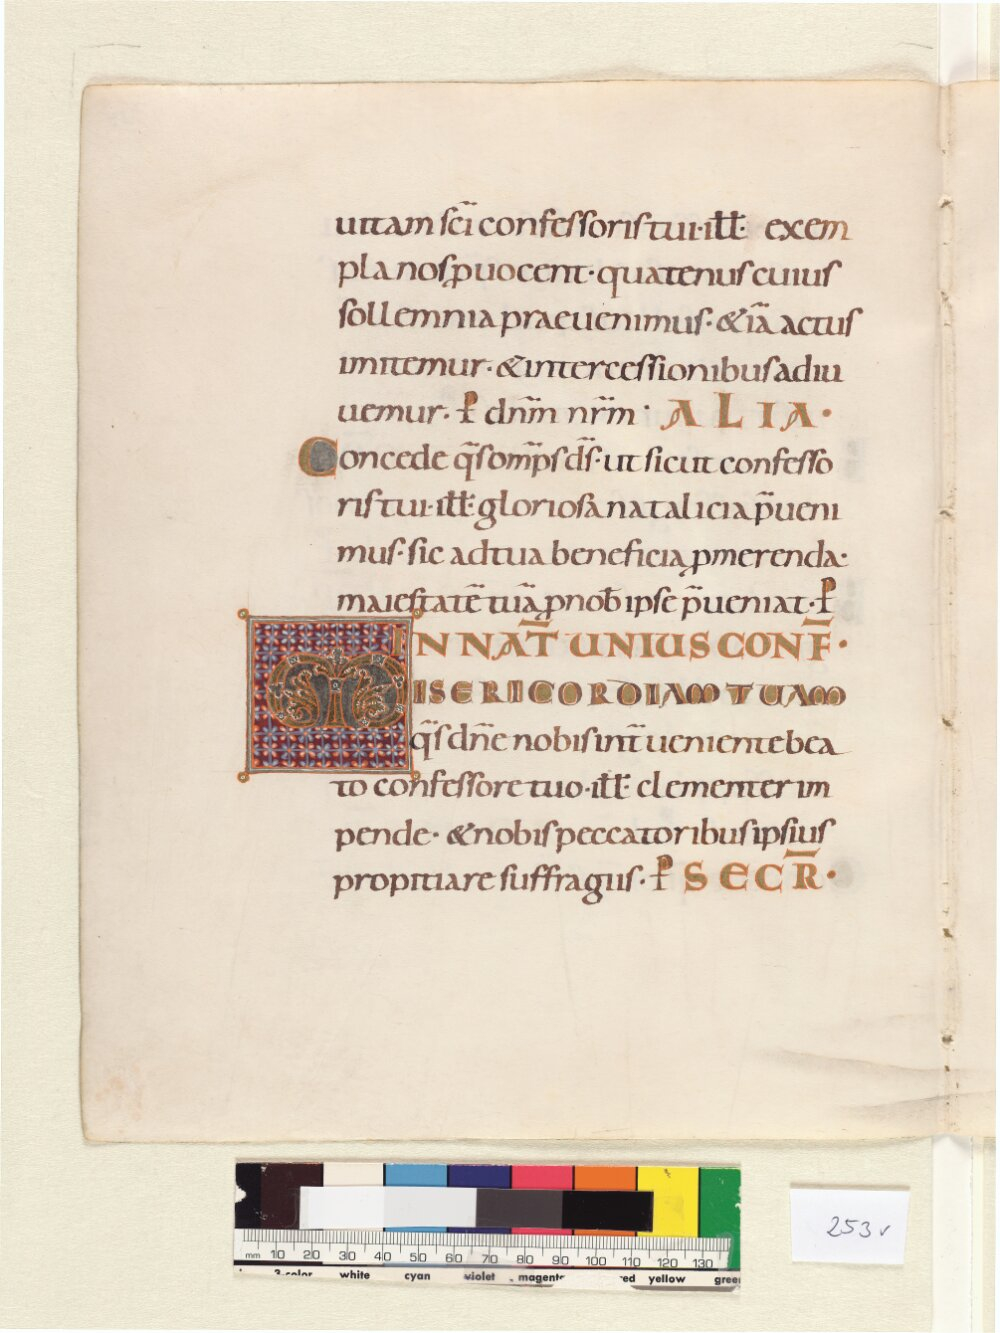 uitam sc̄i confessoris tui· ill̅· exem
pla nos ꝓuocent· quatenus cuius
sollemnia praeuenimus· & iā actus
imitemur· & intercessionibus adiu
uemur· P̲ dn̄m nr̄m· ALIA·
Concede q̄s om̄ps d̄s· ut sicut confesso
ris tui· ill̅· gloriosa natalicia p̄ueni
mus· sic ad tua beneficia ꝓmerenda·
maiestatē tuā ꝓ nob̄ ipse p̄ueniat· P̲
IN NAT̄ UNIUS CONF̄·
MISERICORDIAM TUAM
q̄s dn̄e nobis int̄ueniente bea
to confessore tuo· ill̅· clementer im
pende· & nobis peccatoribus ipsius
propitiare suffragiis· P̲ SECR̄·
253v
mm 10 20 30 40 50 60 70 80 90 100 110 120 130
3-color white cyan violet magenta red yellow green